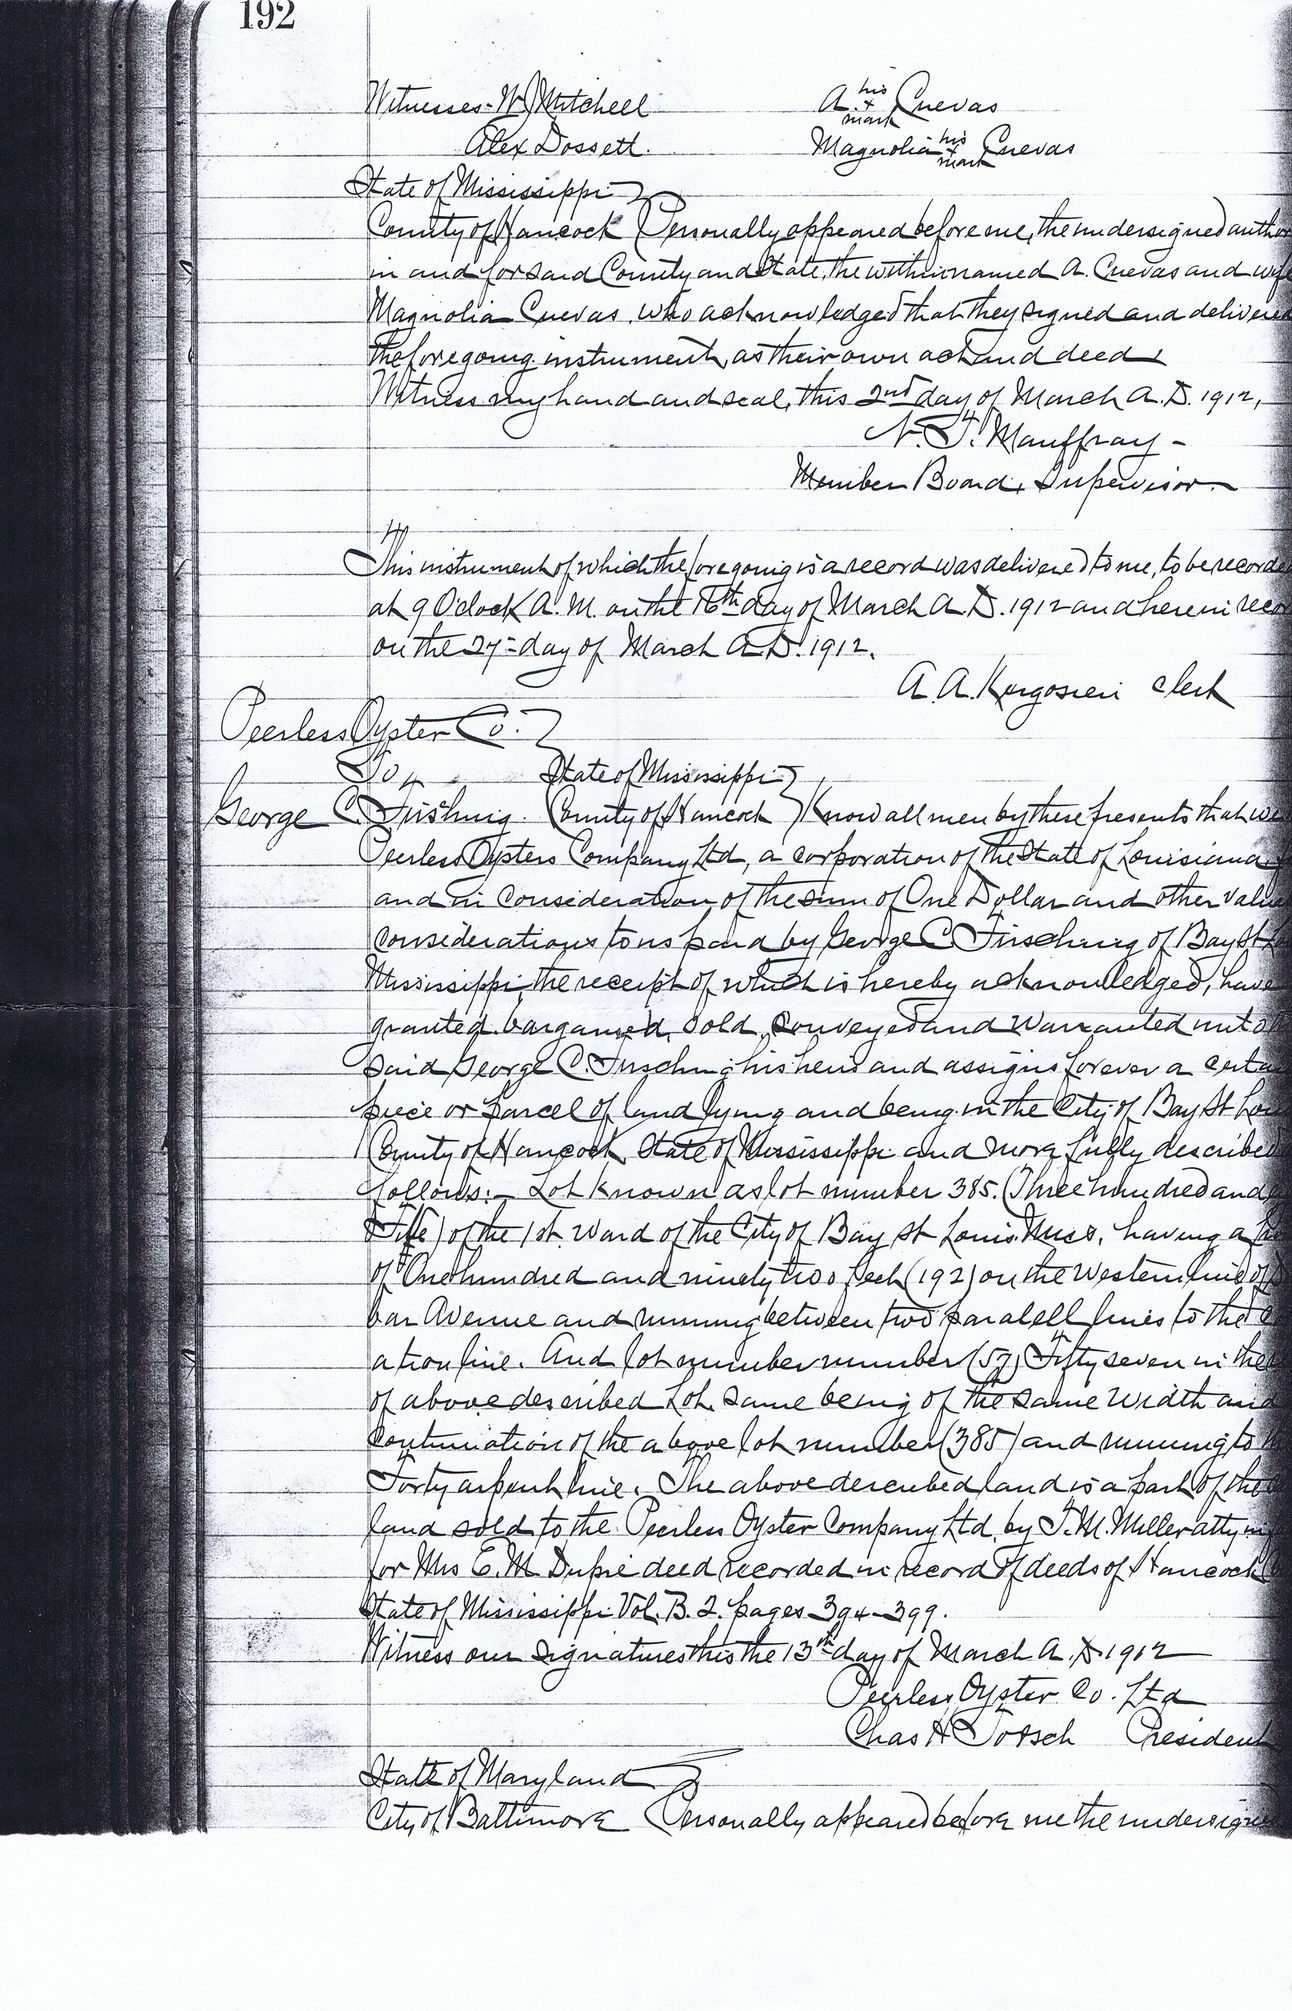 192
Witnesses- W J Mitchell A. his x mark Cuevas
Alex Dossett. Magnolia his x mark Cuevas
State of Mississippi
County of Hancock Personally appeared before me, the undersigned author
in and for said County and State, the within named A. Cuevas and wife
Magnolia Cuevas. who acknowledged that they signed and delivered
the foregoing instrument, as their own act and deed.
Witness my hand and seal, this 2nd day of March A.D. 1912,
Mauffray -
Member Board, Supervisor
This instrument of which the foregoing is a record was delivered to me, to be recorde
at 9 O'clock A. M. on the 16th day of March A. D. 1912 and herein recor
on the 27= day of March A D. 1912.
A. A. Kergosien Clerk
Peerless Oyster Co.
To State of Mississippi
George C. Firsching. County of Hancock Know all men by these presents that we
Peerless Oysters Company Ltd, a corporation of the State of Louisiana
and in consideration of the sum of One Dollar and other valua
considerations to us paid by George C. Firsching of Bay St Lo
Mississippi, the receipt of which is hereby acknowledged, have
granted. bargained, sold, conveyed and warranted unto
said George C. Firsching his heirs and assigns forever a certai
piece or parcel of land lying and being in the City of Bay St Lou
County of Hancock State of Mississippi and more fully described
follows:- Lot known as lot number 385. (Three hundred and
Five) of the 1st. Ward of the City of Bay St Louis Miss, having a
of One hundred and ninety two feet (192) on the Western line of
bar Avenue and running between two paralell lines to the
ation line. And lot number number (57) Fifty seven in the
of above described Lot. same being of the same width and
continuation of the above lot number (385) and running to
Forty arpent line. The above described land is a part of the
land sold to the Peerless Oyster Company Ltd. by T. M. Miller atty in
for Mrs E. M. Dupre deed recorded in record of deeds of Hancock
State of Mississippi Vol. B. 2. pages 394-399.
Witness our signatures this the 13th day of March A. D. 1912
Peerless Oyster Co. Ltd
Chas H Torsch President
State of Maryland
City of Baltimore Personally appeared before me the undersigne